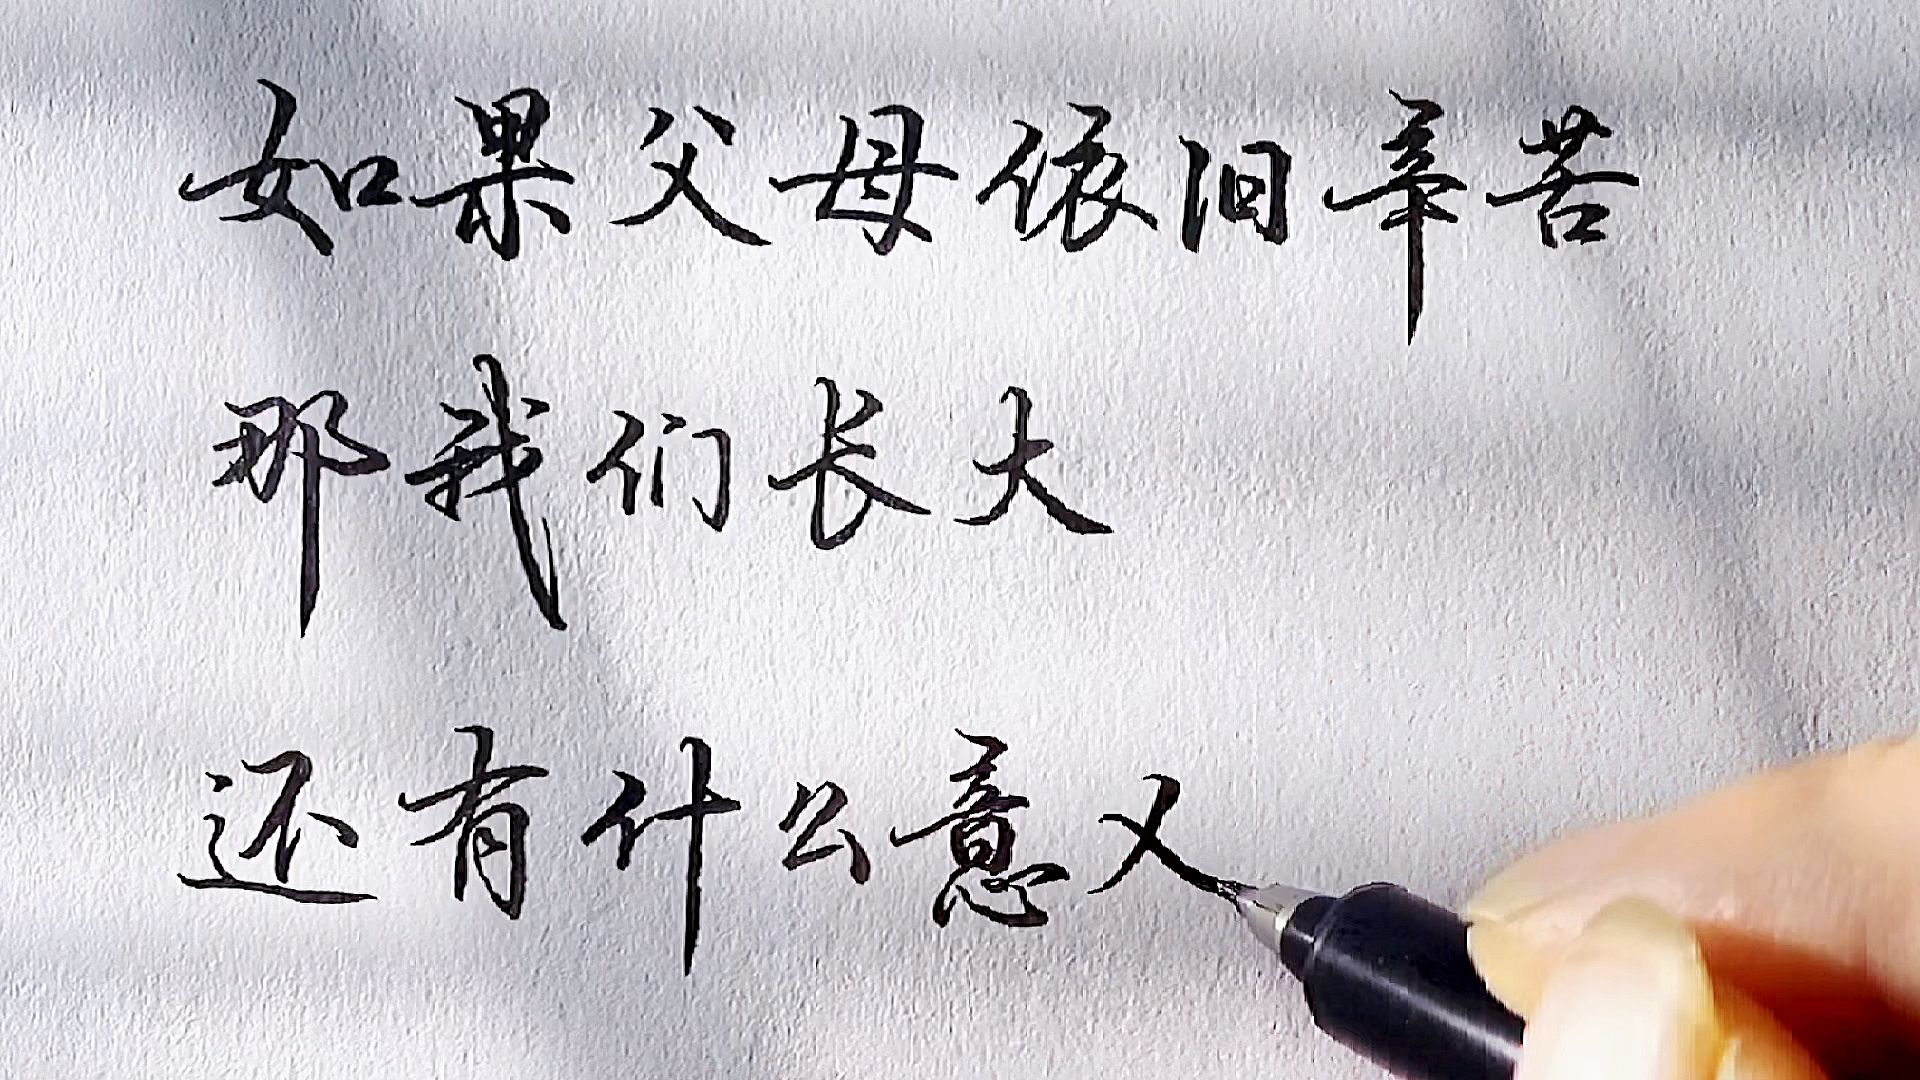 如果父母依旧辛苦
那我们长大
还有什么意义